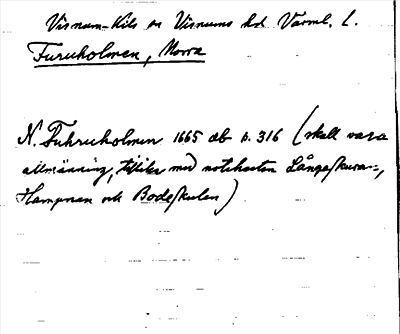 Visnum-Kils sn Visnums hd Värml. l.
Furuholmen, Norra
N. Fuhruholmen 1665 ab s. 316 (skall vara
allmänning, tillika med notehusten Långaskuran,
Hampnan och Bodeskulen)